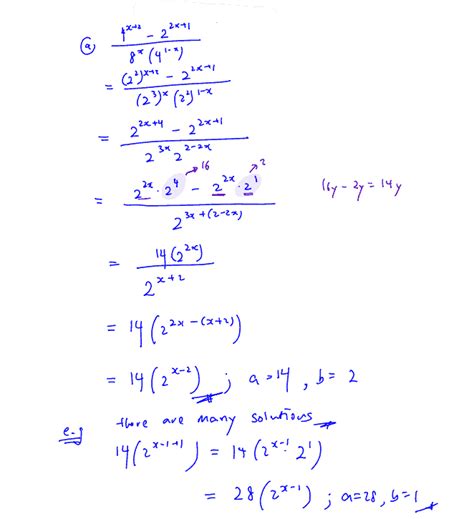 (a) (4^(x+2) - 2^(2x+1)) / (8^x (4^(1-x)))
= ((2^2)^(x+2) - 2^(2x+1)) / ((2^3)^x (2^2)^(1-x))
= (2^(2x+4) - 2^(2x+1)) / (2^(3x) 2^(2-2x))
→ 16 → 2
= (2^(2x) · 2^4 - 2^(2x) · 2^1) / 2^(3x+(2-2x)) 16y - 2y = 14y
= 14(2^(2x)) / 2^(x+2)
= 14(2^(2x-(x+2)))
= 14(2^(x-2)) ; a=14, b=2
e.g there are many solutions
14(2^(x-1+1)) = 14(2^(x-1) · 2^1)
= 28(2^(x-1)) ; a=28, b=1